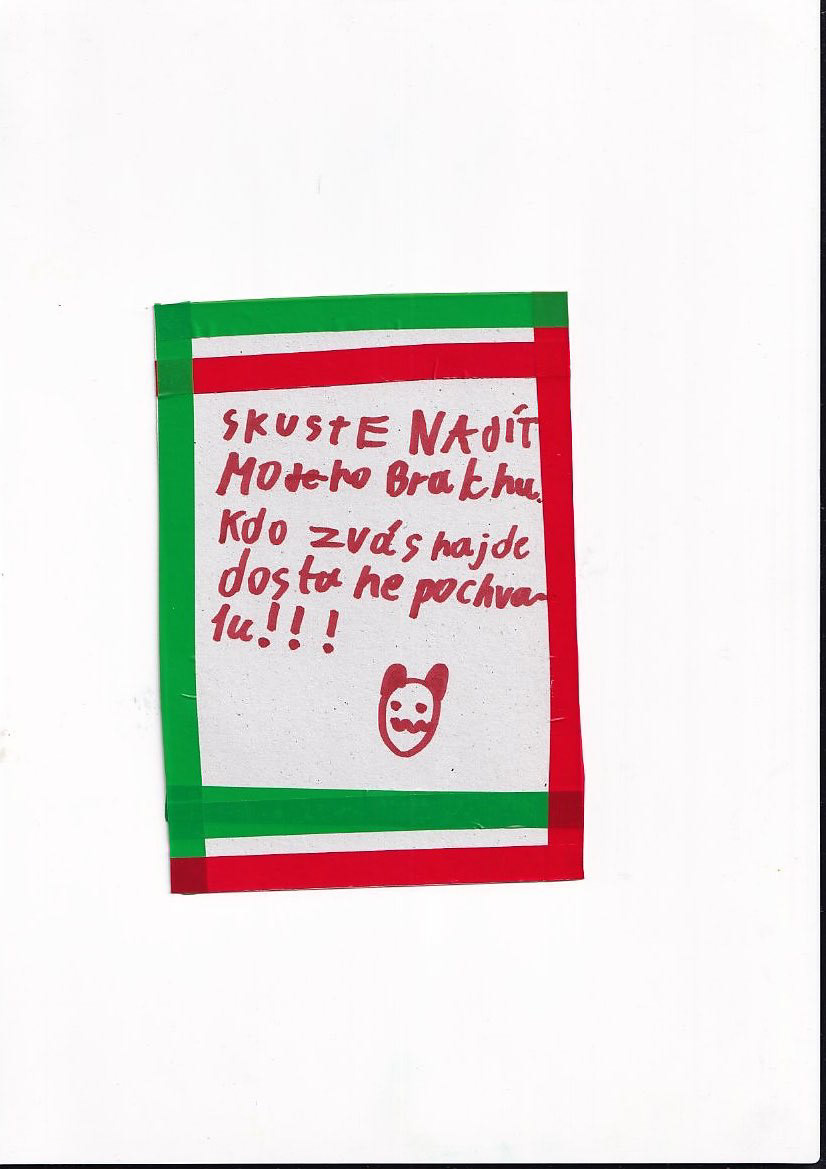 SKUSTE NAdÍT
MOJeho Brathu.
Kdo zvás najde
dostane pochva-
lu!!!